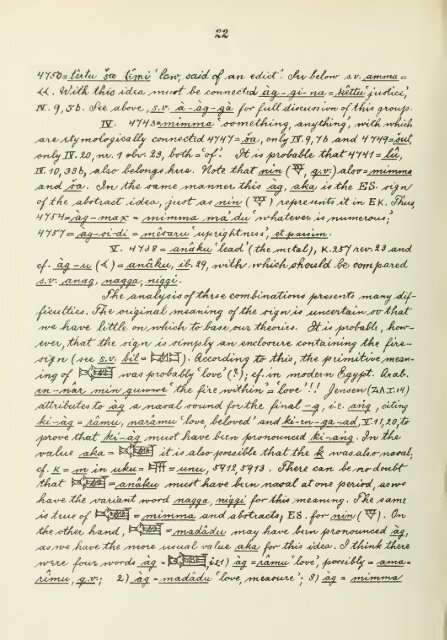 22
4750 = têrtu ša ṭêmi 'law, said of an edict'. See below s.v. amma =
With this idea must be connected àg-gi-na = kêttu 'justice,'
IV. 9, 5b. See above, s.v. à-àg-gà for full discussion of this group.
IV. 4743 = mimma 'something, anything', with which
are etymologically connected 4747 = ša, only IV. 9, 7b and 4749 = šut,
only IV. 20, nr. 1 obv 23, both = 'of.' It is probable that 4741 =
IV. 10, 33b, also belongs here. Note that nin ( q.v.) also = mimma
and ša. In the same manner this àg, aka is the ES. sign
of the abstract idea, just as nin ( ) represents it in EK. Thus,
4754 = àg-max = mimma ma'du 'whatever is numerous,'
4757 = àg-si-di = mêšaru 'uprightness', et passim.
V. 4738 = anâku 'lead' (the metal), K. 257 rev. 23 and
cf. àg-u ( ) = anâku, ib. 29, with which should be compared
s.v. anag, nagga, niggi.
The analysis of these combinations presents many dif-
ficulties. The original meaning of the sign is uncertain so that
we have little on which to base our theories. It is probable, how-
ever, that the sign is simply an enclosure containing the fire-
sign (see s.v. bil = ). According to this, the primitive mean-
ing of was probably 'love' (?); cf. in modern Egypt. Arab.
en-nâr min guwwe 'the fire within' = 'love'!! Jensen (ZA I.14)
attributes to àg a nasal sound for the final -g, i.e. ang, citing
ki-àg = râmu, narâmu 'love, beloved' and ki-en-ga-ad, V. 11, 20, to
prove that ki-àg must have been pronounced ki-ang. In the
value aka = it is also possible that the k was also nasal,
cf. k = m in uku = = unu, 5912, 5913. There can be no doubt
that = anâku must have been nasal at one period, as we
have the variant word nagga, niggi for this meaning. The same
is true of = mimma and abstracts, ES. for nin ( ). On
the other hand, = madâdu may have been pronounced àg,
as we have the more usual value aka for this idea. I think there
were four words àg = : 1) àg = râmu 'love', possibly = ama =
rîmu, q.v.; 2) àg = madâdu 'love, measure'; 3) àg = mimma